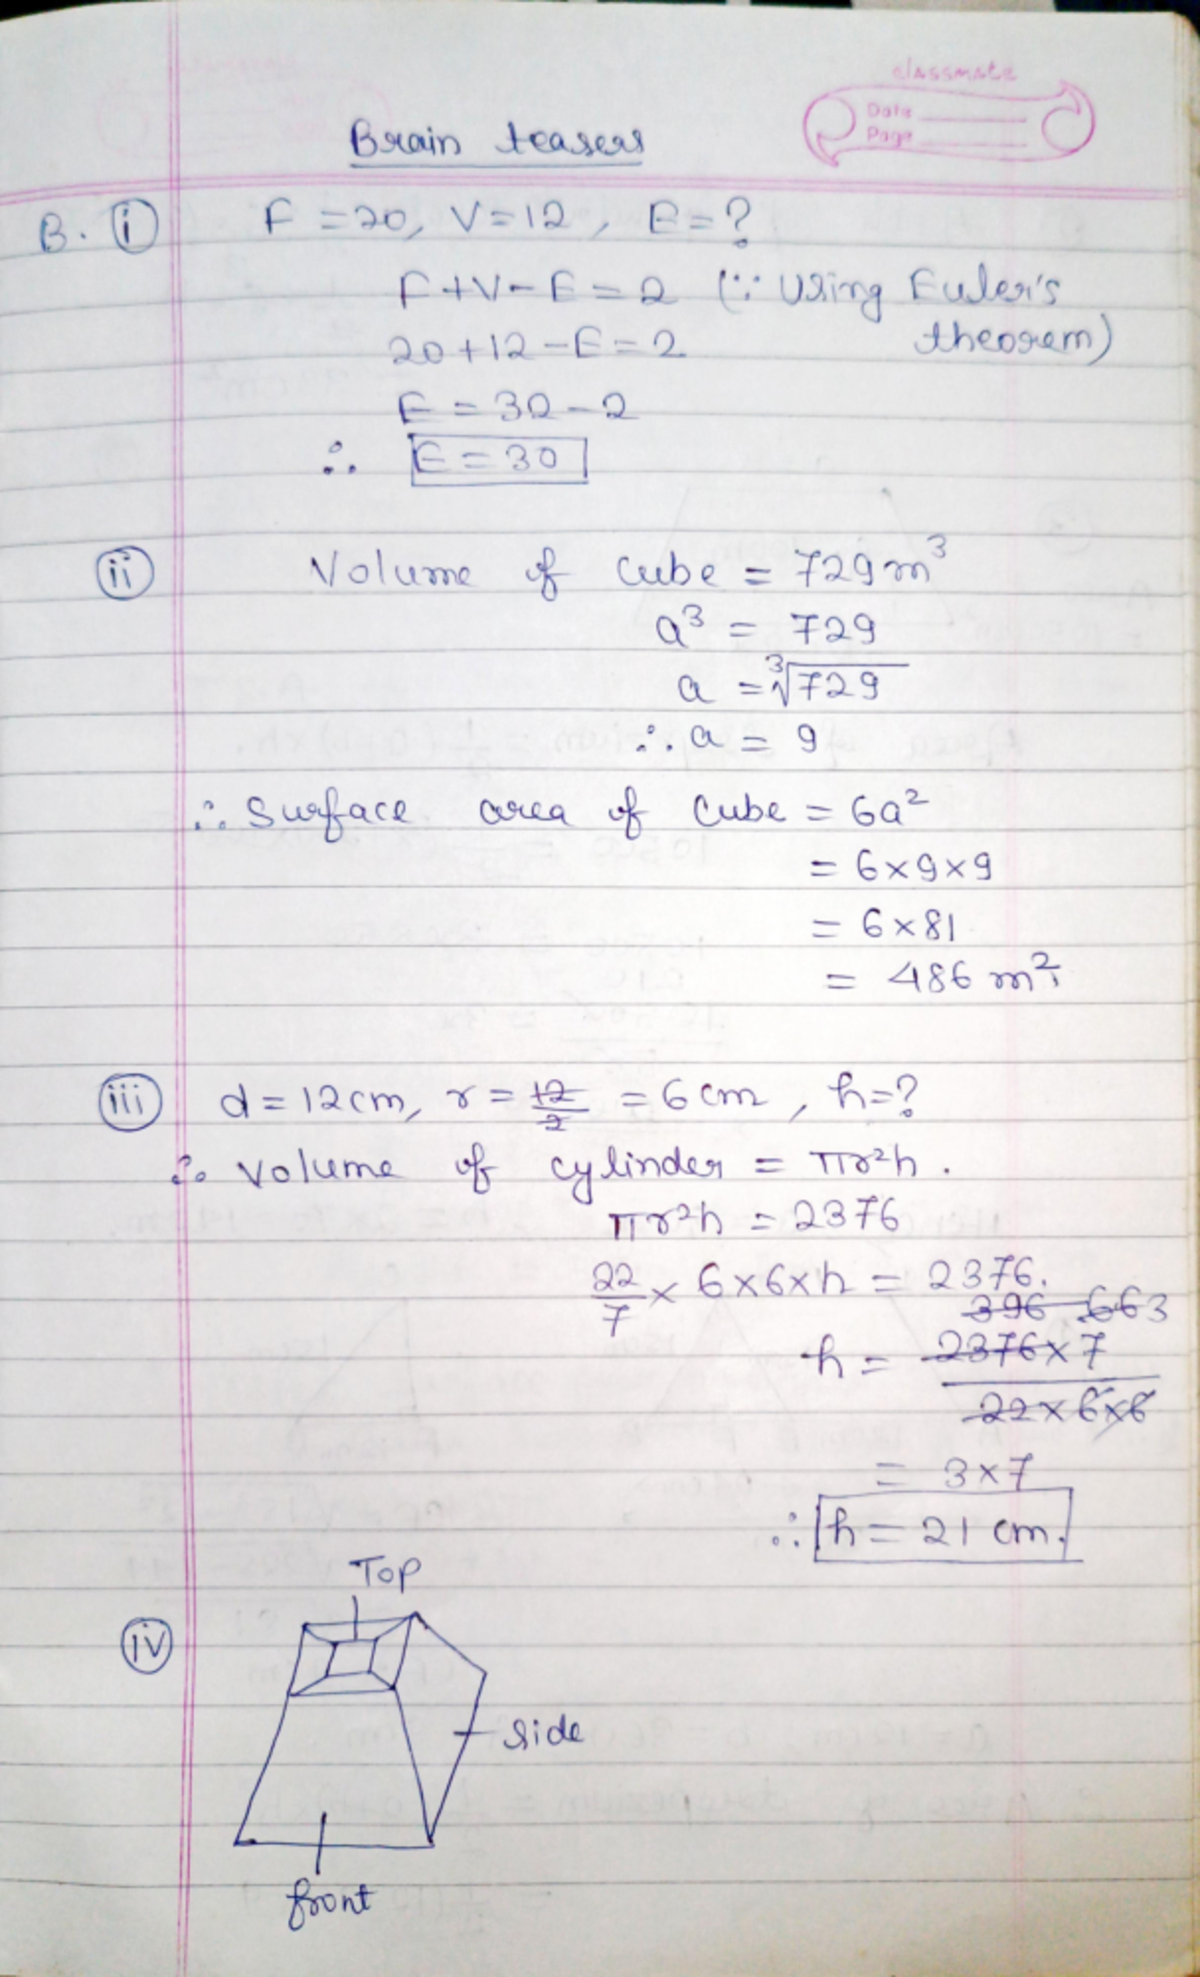 classmate
Date
Page
Brain teasers
B. (i) F = 20, V = 12, E = ?
F + V - E = 2 (∵ Using Euler's
theorem)
20 + 12 - E = 2
E = 32 - 2
∴ E = 30
(ii) Volume of cube = 729 m³
a³ = 729
a = ∛729
∴ a = 9
∴ Surface area of cube = 6a²
= 6 × 9 × 9
= 6 × 81
= 486 m²
(iii) d = 12 cm, r = 12/2 = 6 cm, h = ?
∴ Volume of cylinder = πr²h.
πr²h = 2376
22/7 × 6 × 6 × h = 2376.
396 66 3
h = 2376 × 7 / 22 × 6 × 6
= 3 × 7
∴ h = 21 cm.
(iv) Top
side
front